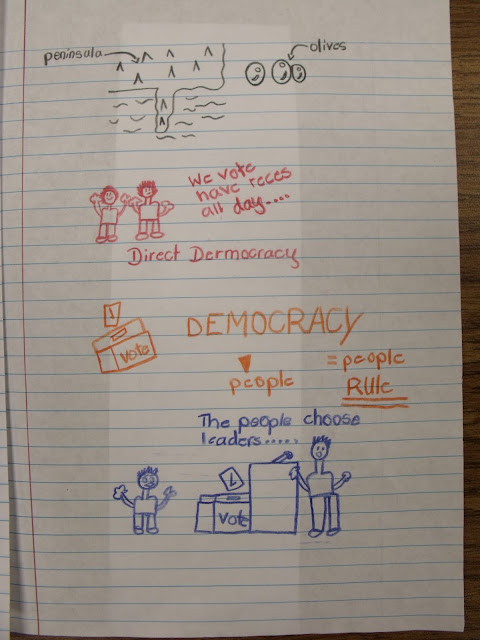 peninsula
olives
We vote
have reces
all day....
Direct Dermocracy
DEMOCRACY
vote
people
= people
Rule
The people choose
leaders.....
Vote